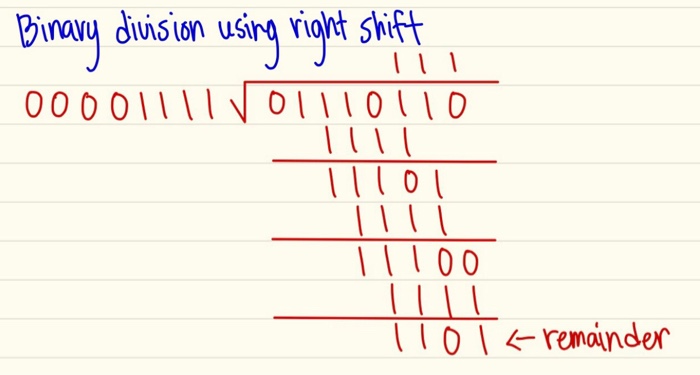 Binary division using right shift
111
00001111√01110110
1111
11101
1111
11100
1111
1101 ← remainder